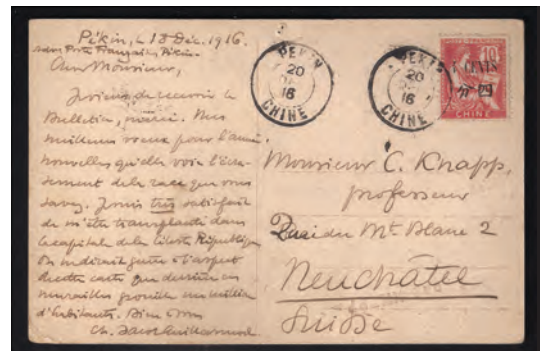 Pékin, le 18 Déc. 1916.
Poste Française, Pékin.
Cher Monsieur,
Je viens de recevoir le
Bulletin, merci. Mes
meilleurs voeux pour l'année
nouvelle, qu'elle voie l'écra-
sement de la race que vous
savez. Je suis très satisfait
de m'être transplanté dans
la capitale de la Céleste République
On ne dirait guère à l'aspect
de cette carte que derrière ces
murailles grouille un million
d'habitants. Bien à vous
Ch. Jacot Guillarmod
PEKIN
20
16
CHINE
PEKIN
20
16
CHINE
10
4 CENTS
分四
CHINE
Monsieur C. Knapp,
professeur
Quai du Mt. Blanc 2
Neuchâtel
Suisse